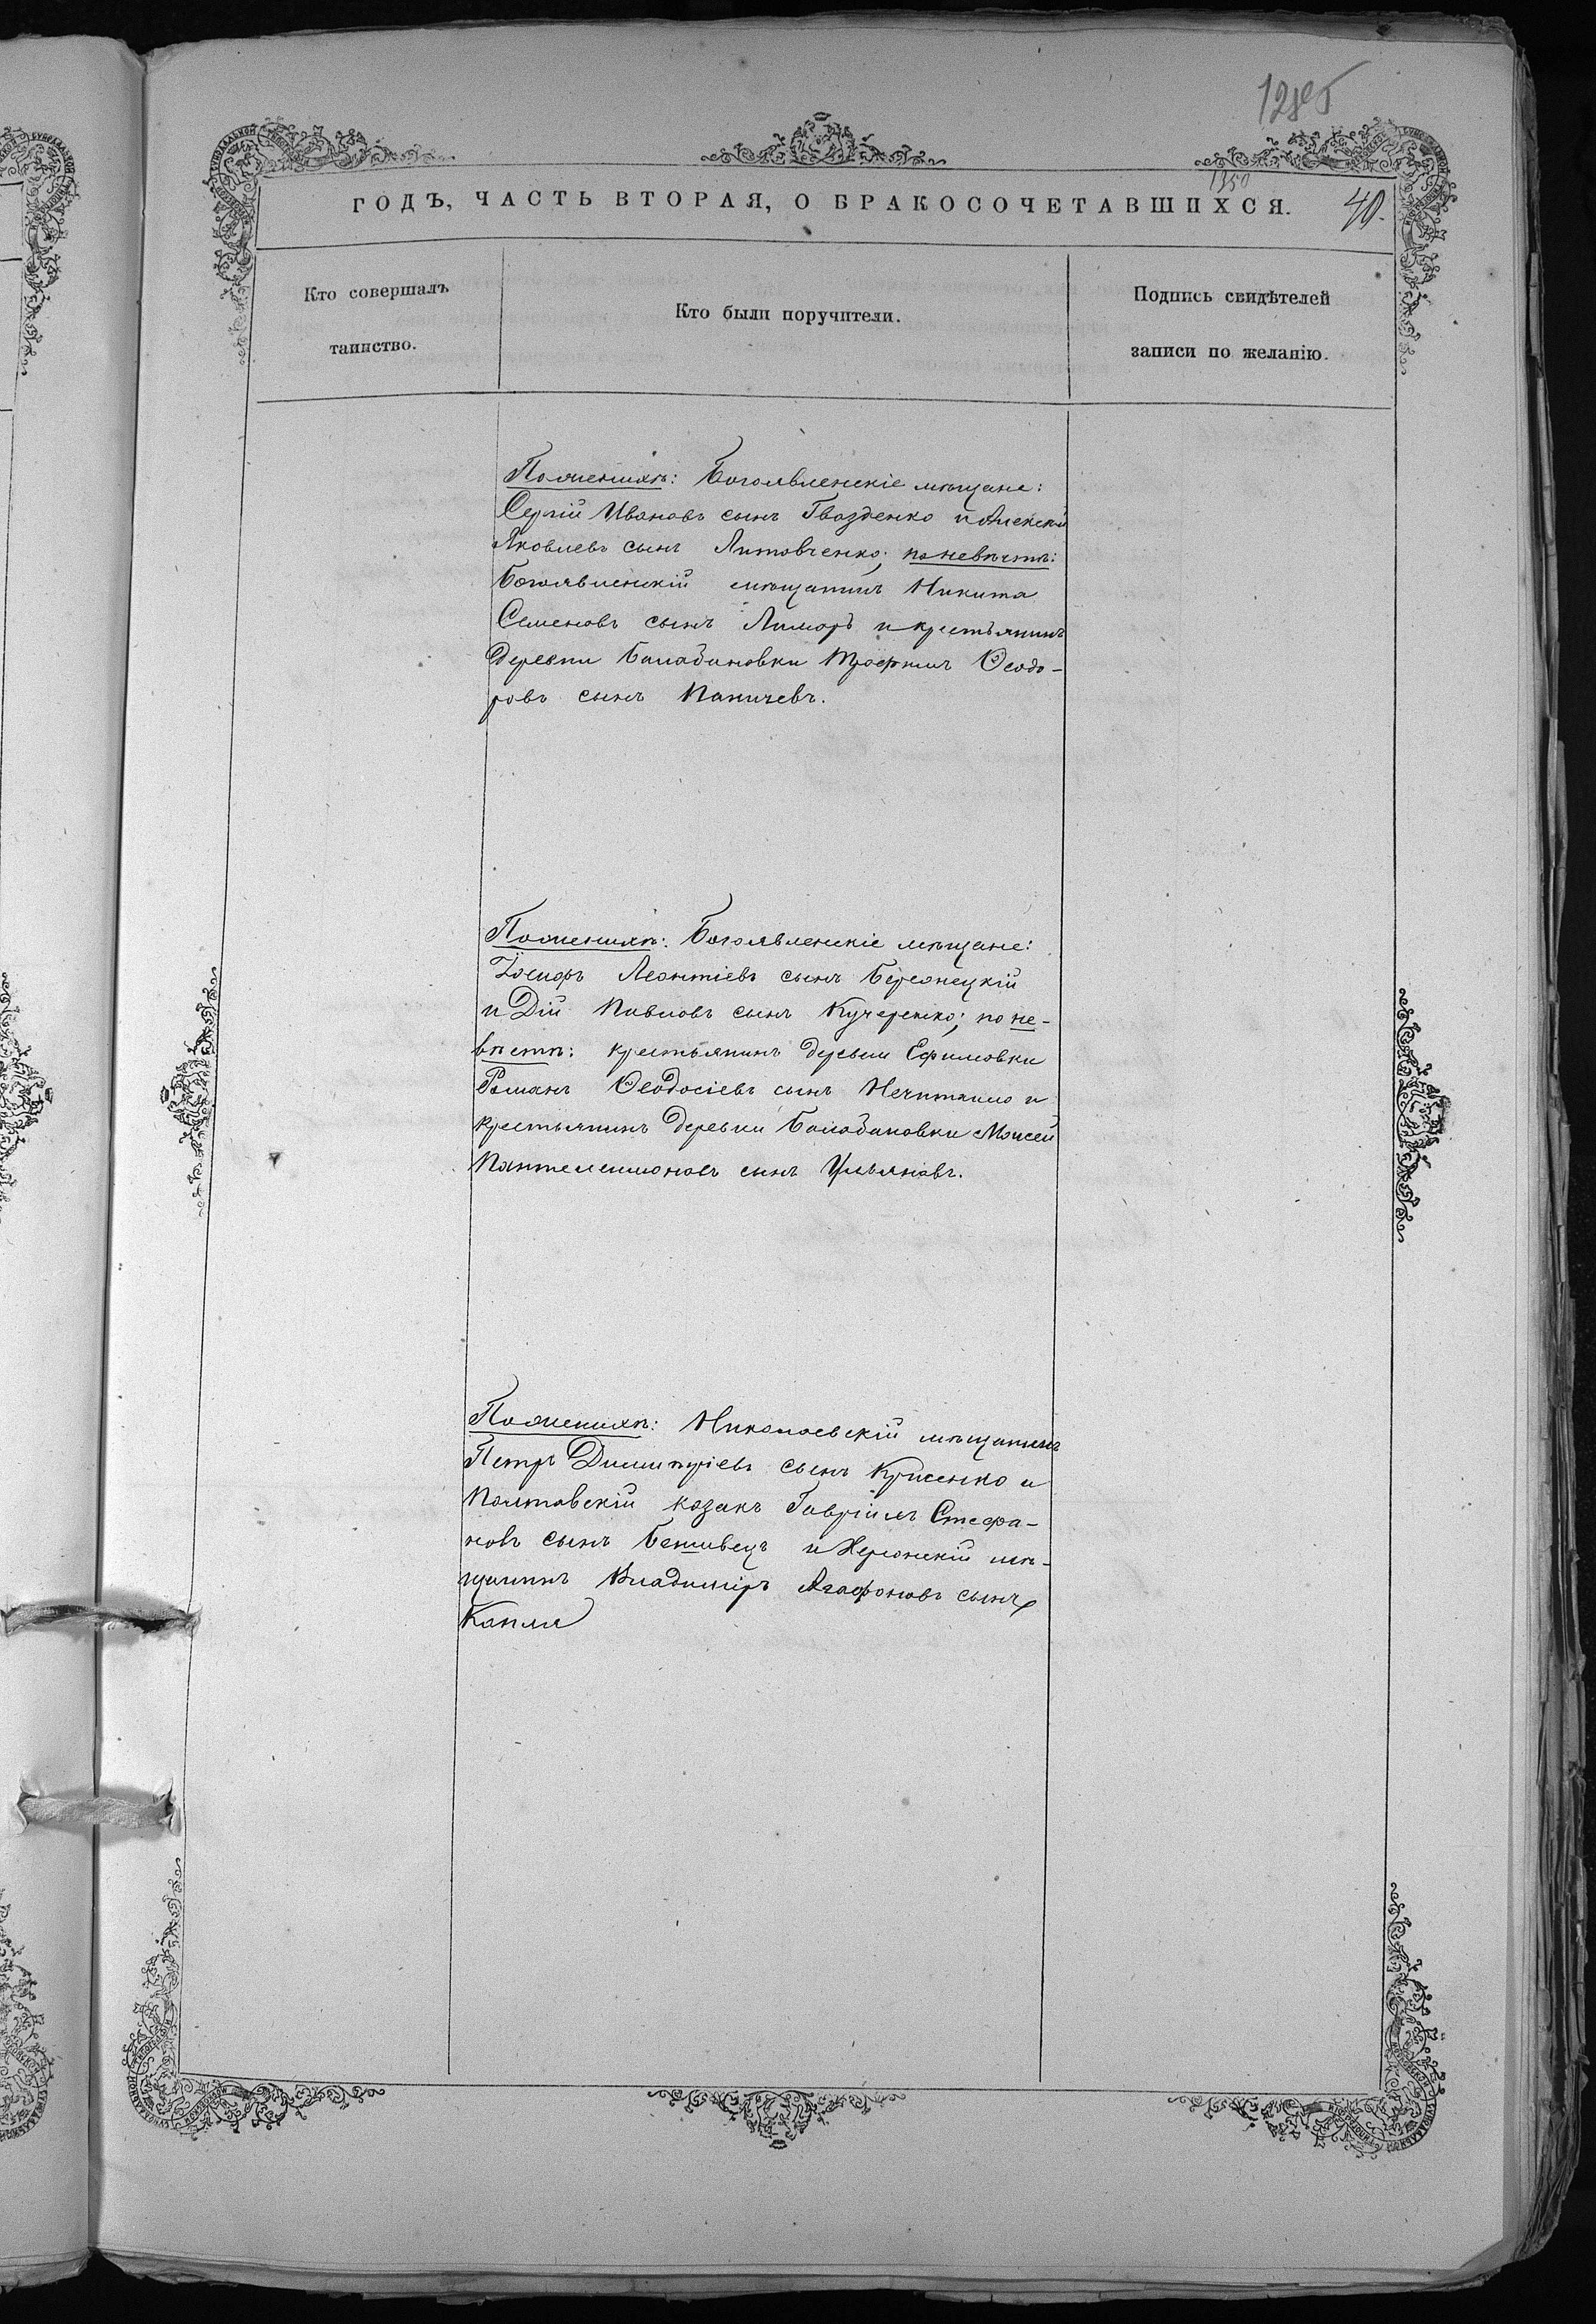 1350
ГОДЪ, ЧАСТЬ ВТОРАЯ, О БРАКОСОЧЕТАВШИХСЯ.
40.
Кто совершалъ
таинство.
Кто были поручители.
Подпись свидѣтелей
записи по желанію.
По женихѣ: Богоявленскіе мѣщане:
Сергій Ивановъ сынъ Гвозденко и Алексѣй
Яковлевъ сынъ Литовченко; по невѣстѣ:
Богоявленскій мѣщанинъ Никита
Семеновъ сынъ Лимарь и крестьянинъ
деревни Балабановки Трофимъ Ѳеодо-
ровъ сынъ Паничевъ.
По женихѣ: Богоявленскіе мѣщане:
Іосифъ Леонтіевъ сынъ
и Дій Павловъ сынъ Кучеренко; по не-
вѣстѣ: крестьянинъ деревни Ефимовки
Романъ Ѳеодосіевъ сынъ Нечитайло и
крестьянинъ деревни Балабановки Моисей
Пантелеимоновъ сынъ Ульяновъ.
По женихѣ: Николаевскій мѣщанинъ
Петръ Димитріевъ сынъ и
Полтавскій казакъ Гавріилъ Стефа-
новъ сынъ и Херсонскій мѣ-
щанинъ Владиміръ Агафоновъ сынъ
Капля